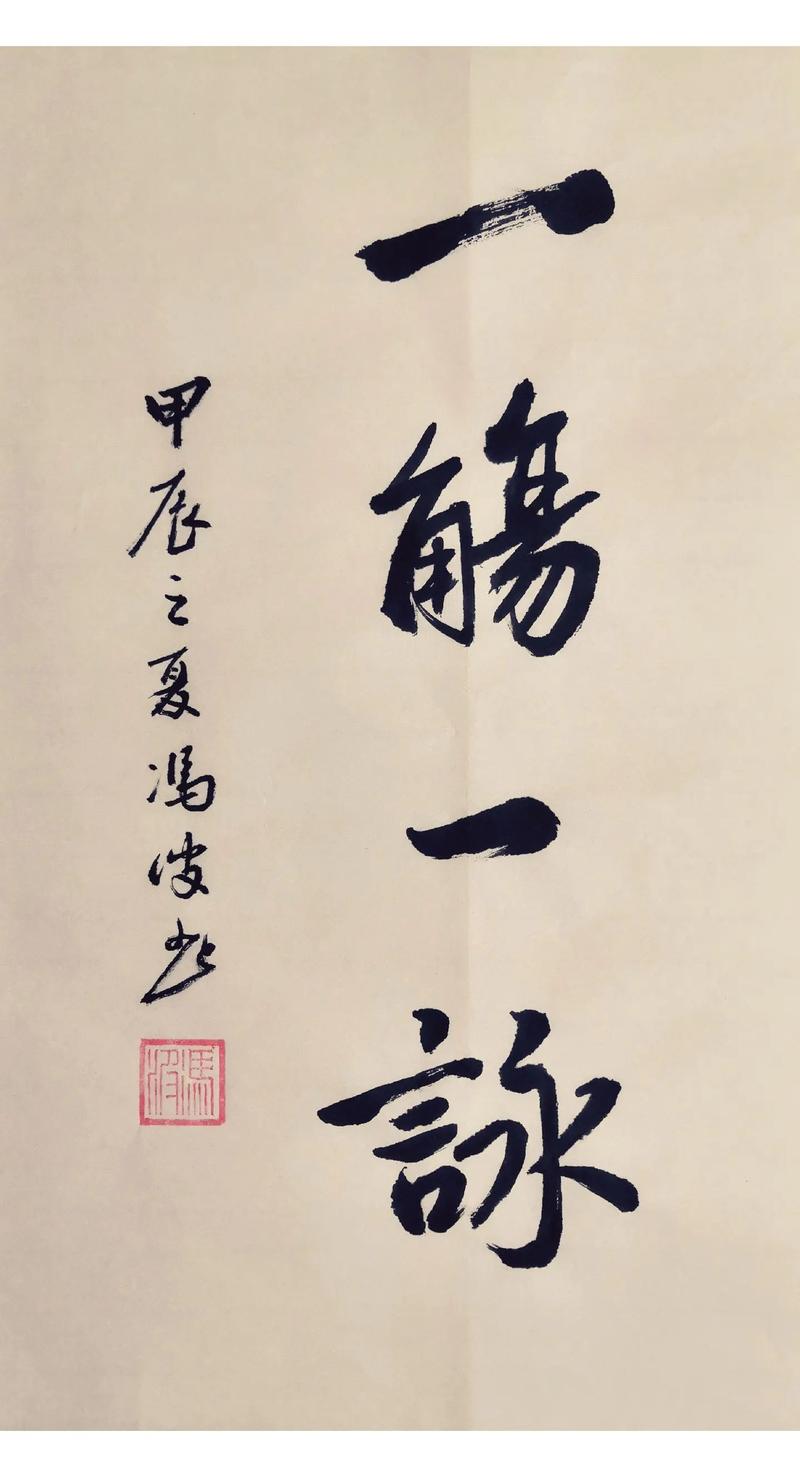 一觴一詠
甲辰之夏馮波
馮波